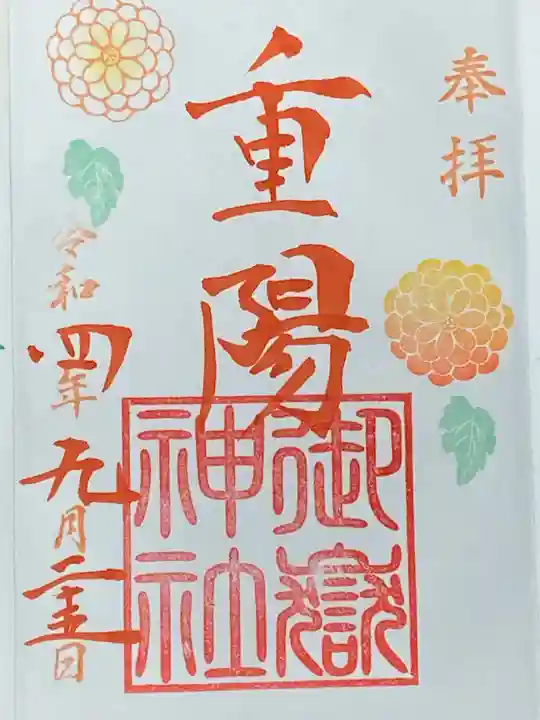 奉拝
重陽
御嶽
神社
令和四年九月二十五日